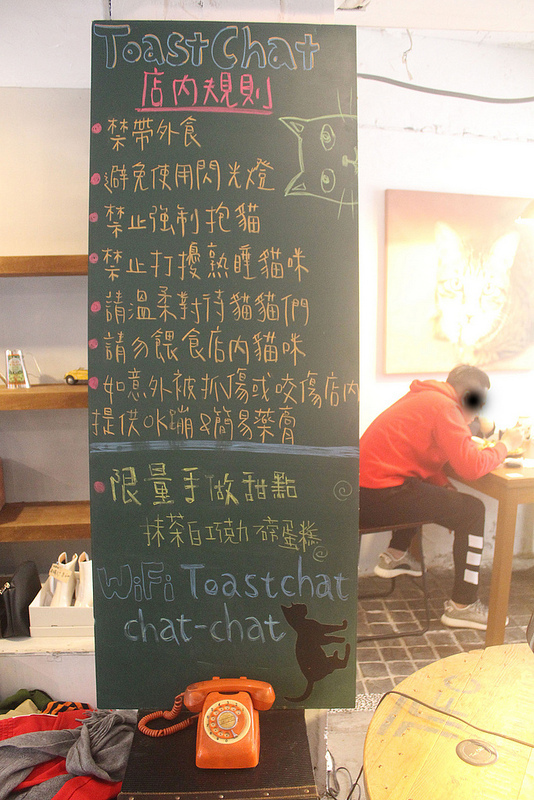 ToastChat
店內規則
禁帶外食
避免使用閃光燈
禁止強制抱貓
禁止打擾熟睡貓咪
請溫柔對待貓貓們
請勿餵食店內貓咪
如意外被抓傷或咬傷店內
提供OK蹦&簡易藥膏
限量手做甜點
抹茶白巧克力磅蛋糕
WiFi Toastchat
chat-chat